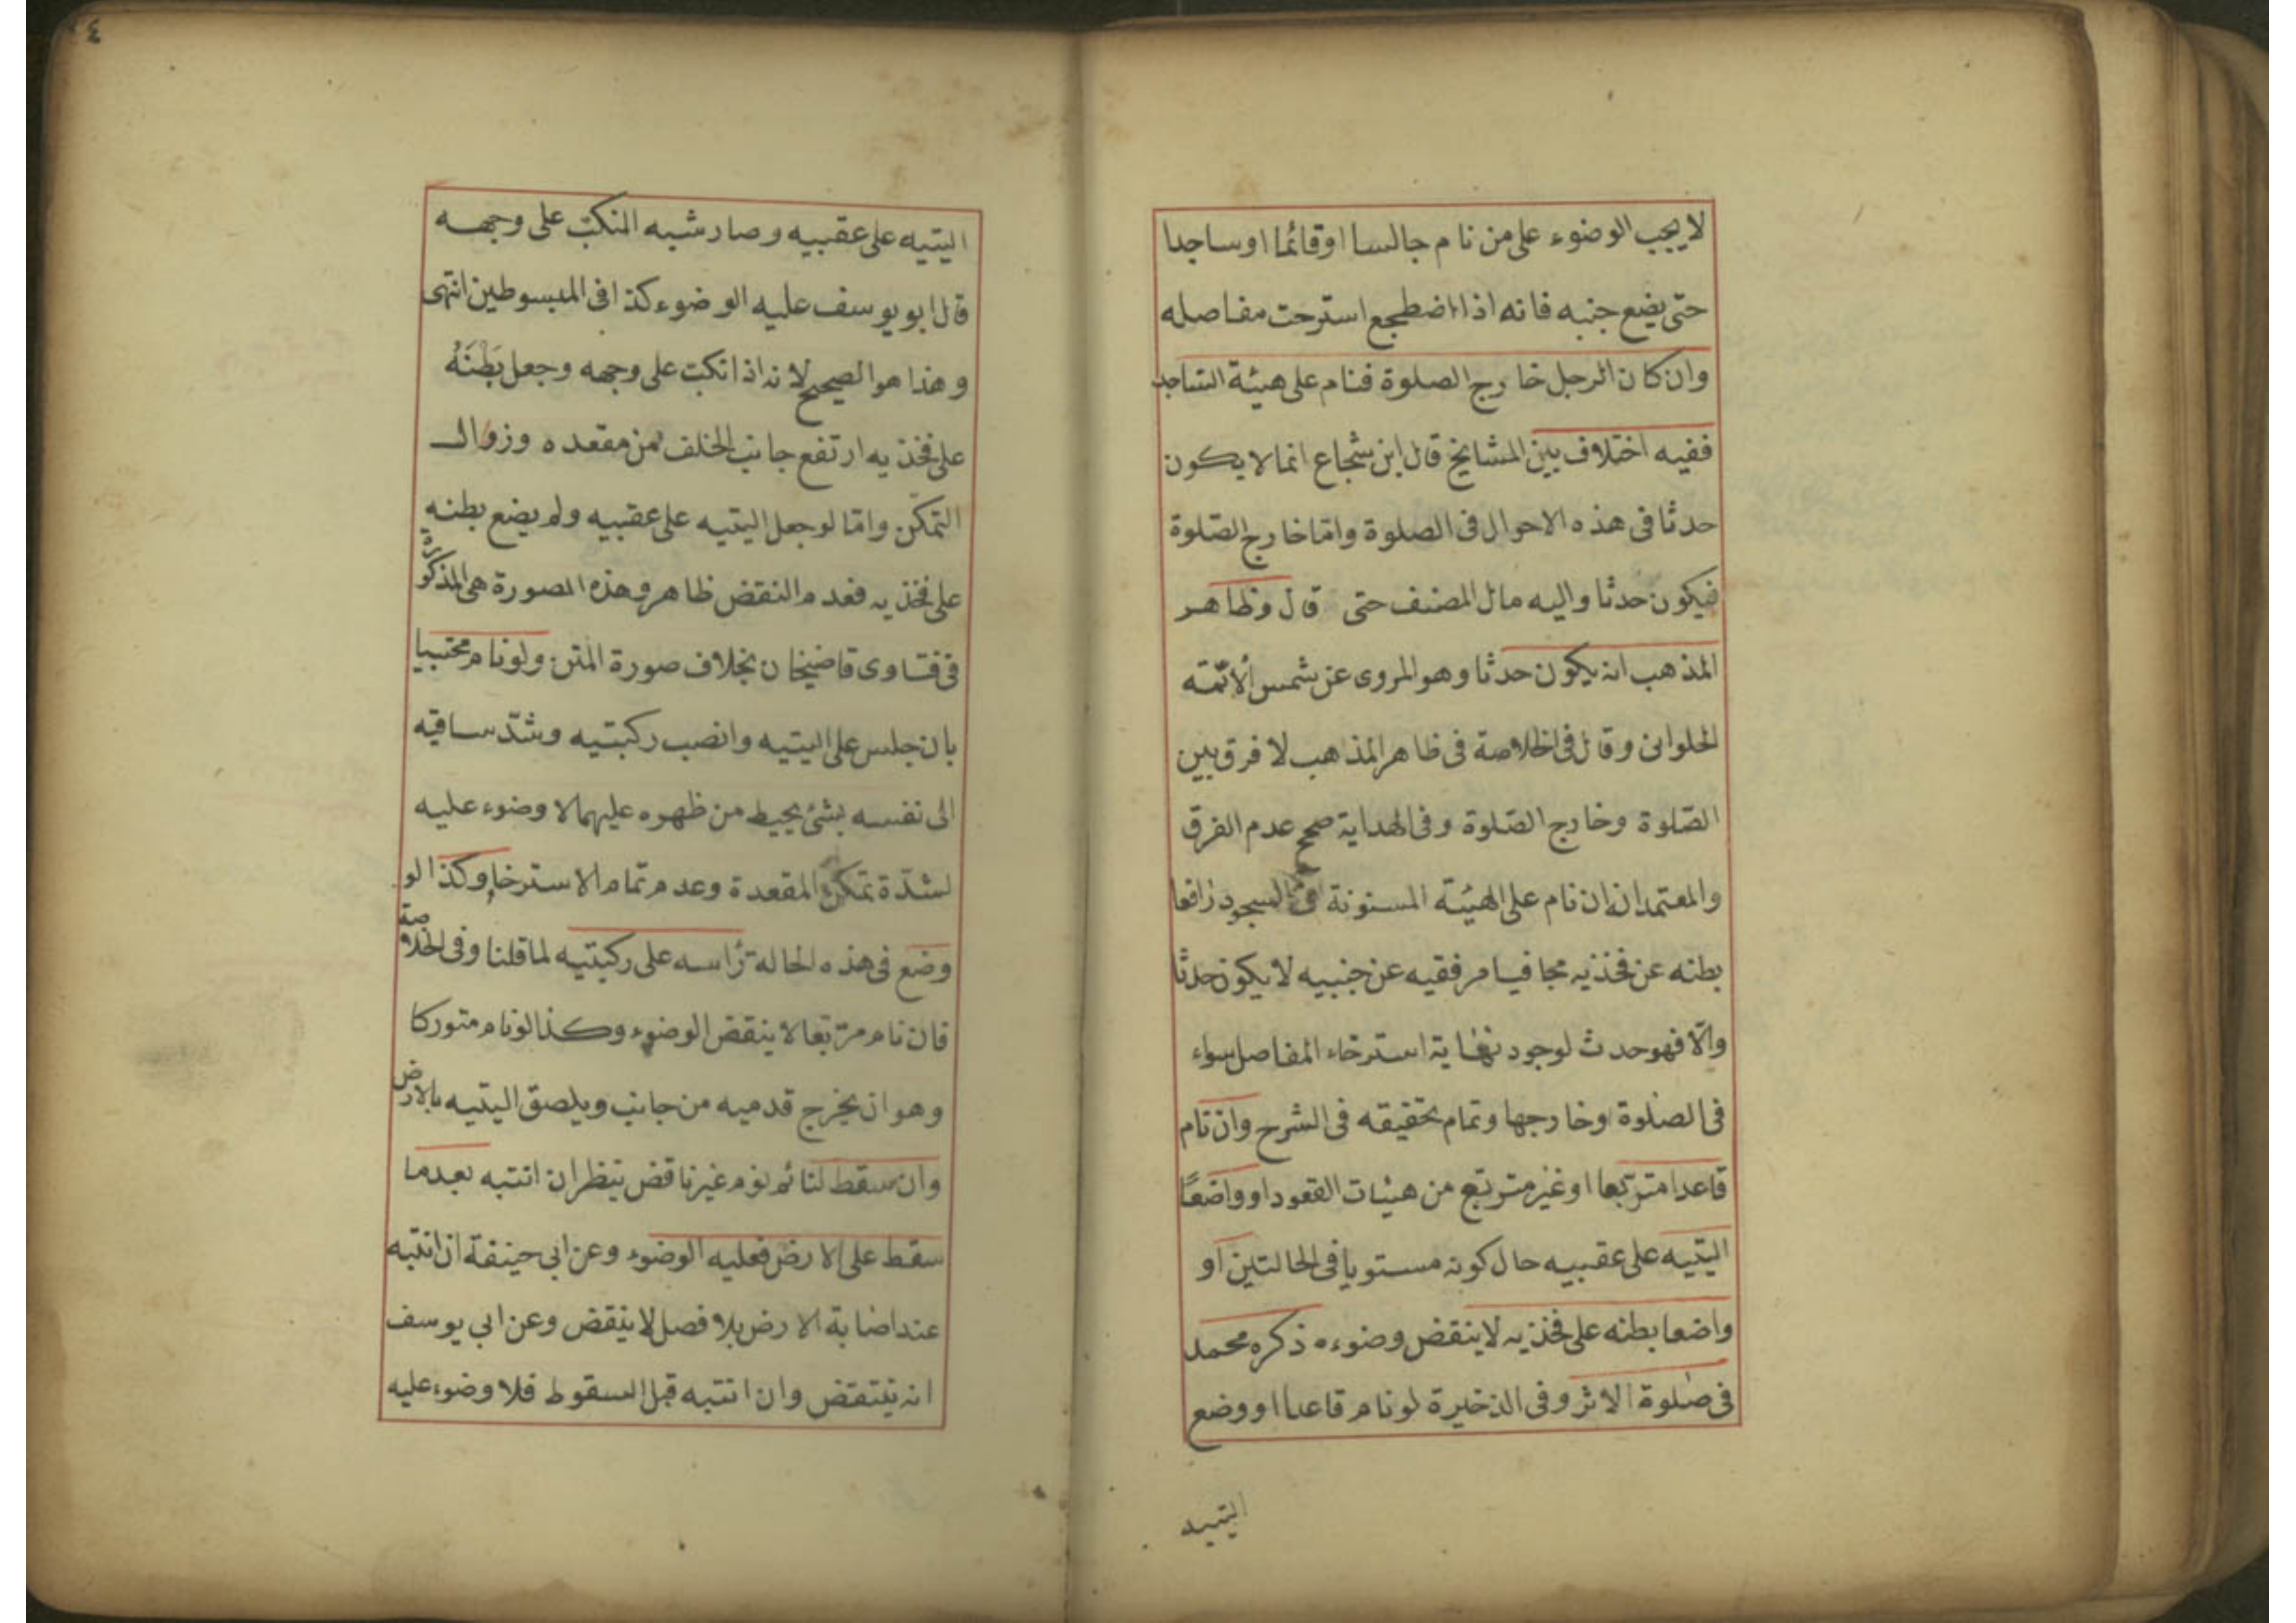 لا يجب الوضوء على من نام جالسا او قائما او ساجدا
حتى يضع جنبه فانه اذا اضطجع استرحت مفاصله
وان كان الرجل خارج الصلوة فنام على هيئة الساجد
ففيه اختلاف بين المشايخ قال ابن شجاع انما لا يكون
حدثا فى هذه الاحوال فى الصلوة واما خارج الصلوة
فيكون حدثا واليه مال المصنف حتى قال وظاهر
المذهب انه يكون حدثا وهو المروى عن شمس الائمة
الحلوانى وقال فى الخلاصة فى ظاهر المذهب لا فرق بين
الصلوة وخارج الصلوة وفى الهداية صحح عدم الفرق
والمعتمد انه ان نام على الهيئة المسنونة فى السجود رافعا
بطنه عن فخذيه مجافيا مرفقيه عن جنبيه لا يكون حدثا
والا فهو حدث لوجود نهاية استرخاء المفاصل سواء
فى الصلوة وخارجها وتمام تحقيقه فى الشرح وان نام
قاعدا متربعا او غير متربع من هيئات القعود او واضعا
اليتيه على عقبيه حال كونه مستويا فى الحالتين او
واضعا بطنه على فخذيه لا ينقض وضوءه ذكره محمد
فى صلوة الاثر وفى الذخيرة لو نام قاعدا او وضع
اليتيه
٤
اليتيه على عقبيه وصار شبه المنكب على وجهه
قال ابو يوسف عليه الوضوء كذا فى المبسوطين انتهى
وهذا هو الصحيح لانه اذا انكب على وجهه وجعل بَطْنَهُ
على فخذيه ارتفع جانب الخلف من مقعده وزوال
التمكن واما لو جعل اليتيه على عقبيه ولم يضع بطنه
على فخذيه فعدم النقض ظاهر وهذه الصورة هى المذكورة
فى فتاوى قاضيخان بخلاف صورة المتن ولو نام محتبيا
بان جلس على اليتيه وانصب ركبتيه وشد ساقيه
الى نفسه بشئ يحيط من ظهره عليهما لا وضوء عليه
لشدة تمكن المقعدة وعدم تمام الاسترخاء وكذا لو
وضع فى هذه الحالة رأسه على ركبتيه لما قلنا وفى الخلاصة
فان نام متربعا لا ينقض الوضوء وكذا لو نام متوركا
وهو ان يخرج قدميه من جانب ويلصق اليتيه بالارض
وان سقط لنائم نوم غير ناقض ينظر ان انتبه بعدما
سقط على الارض فعليه الوضوء وعن ابى حنيفة ان انتبه
عند اصابة الارض بلا فصل لا ينقض وعن ابى يوسف
انه ينتقض وان انتبه قبل السقوط فلا وضوء عليه